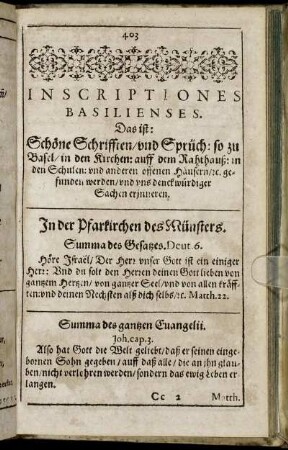 403
INSCRIPTIONES
BASILIENSES.
Das ist:
Schöne Schrifften/vnd Sprüch: so zu
Basel/in den Kirchen: auff dem Rahthauß: in
den Schulen: vnd anderen offenen Häusern/ꝛc. ge-
funden werden/vnd vns denckwürdiger
Sachen erjnneren.
In der Pfarkirchen des Münsters.
Summa des Gesatzes. Deut. 6.
Höre Israël/Der Herr vnser Gott ist ein einiger
Herr: Vnd du solt den Herren deinen Gott lieben von
gantzem Hertzen/von gantzer Seel/vnd von allen kräff-
ten: vnd deinen Nechsten alß dich selbs/ꝛc. Matth. 22.
Summa des gantzen Euangelii.
Joh. cap. 3.
Also hat Gott die Welt geliebt/daß er seinen einge-
bornen Sohn gegeben/auff daß alle/die an jhn glau-
ben/nicht verlohren werden/sondern das ewig Leben er-
langen.
Cc 2 Matth.